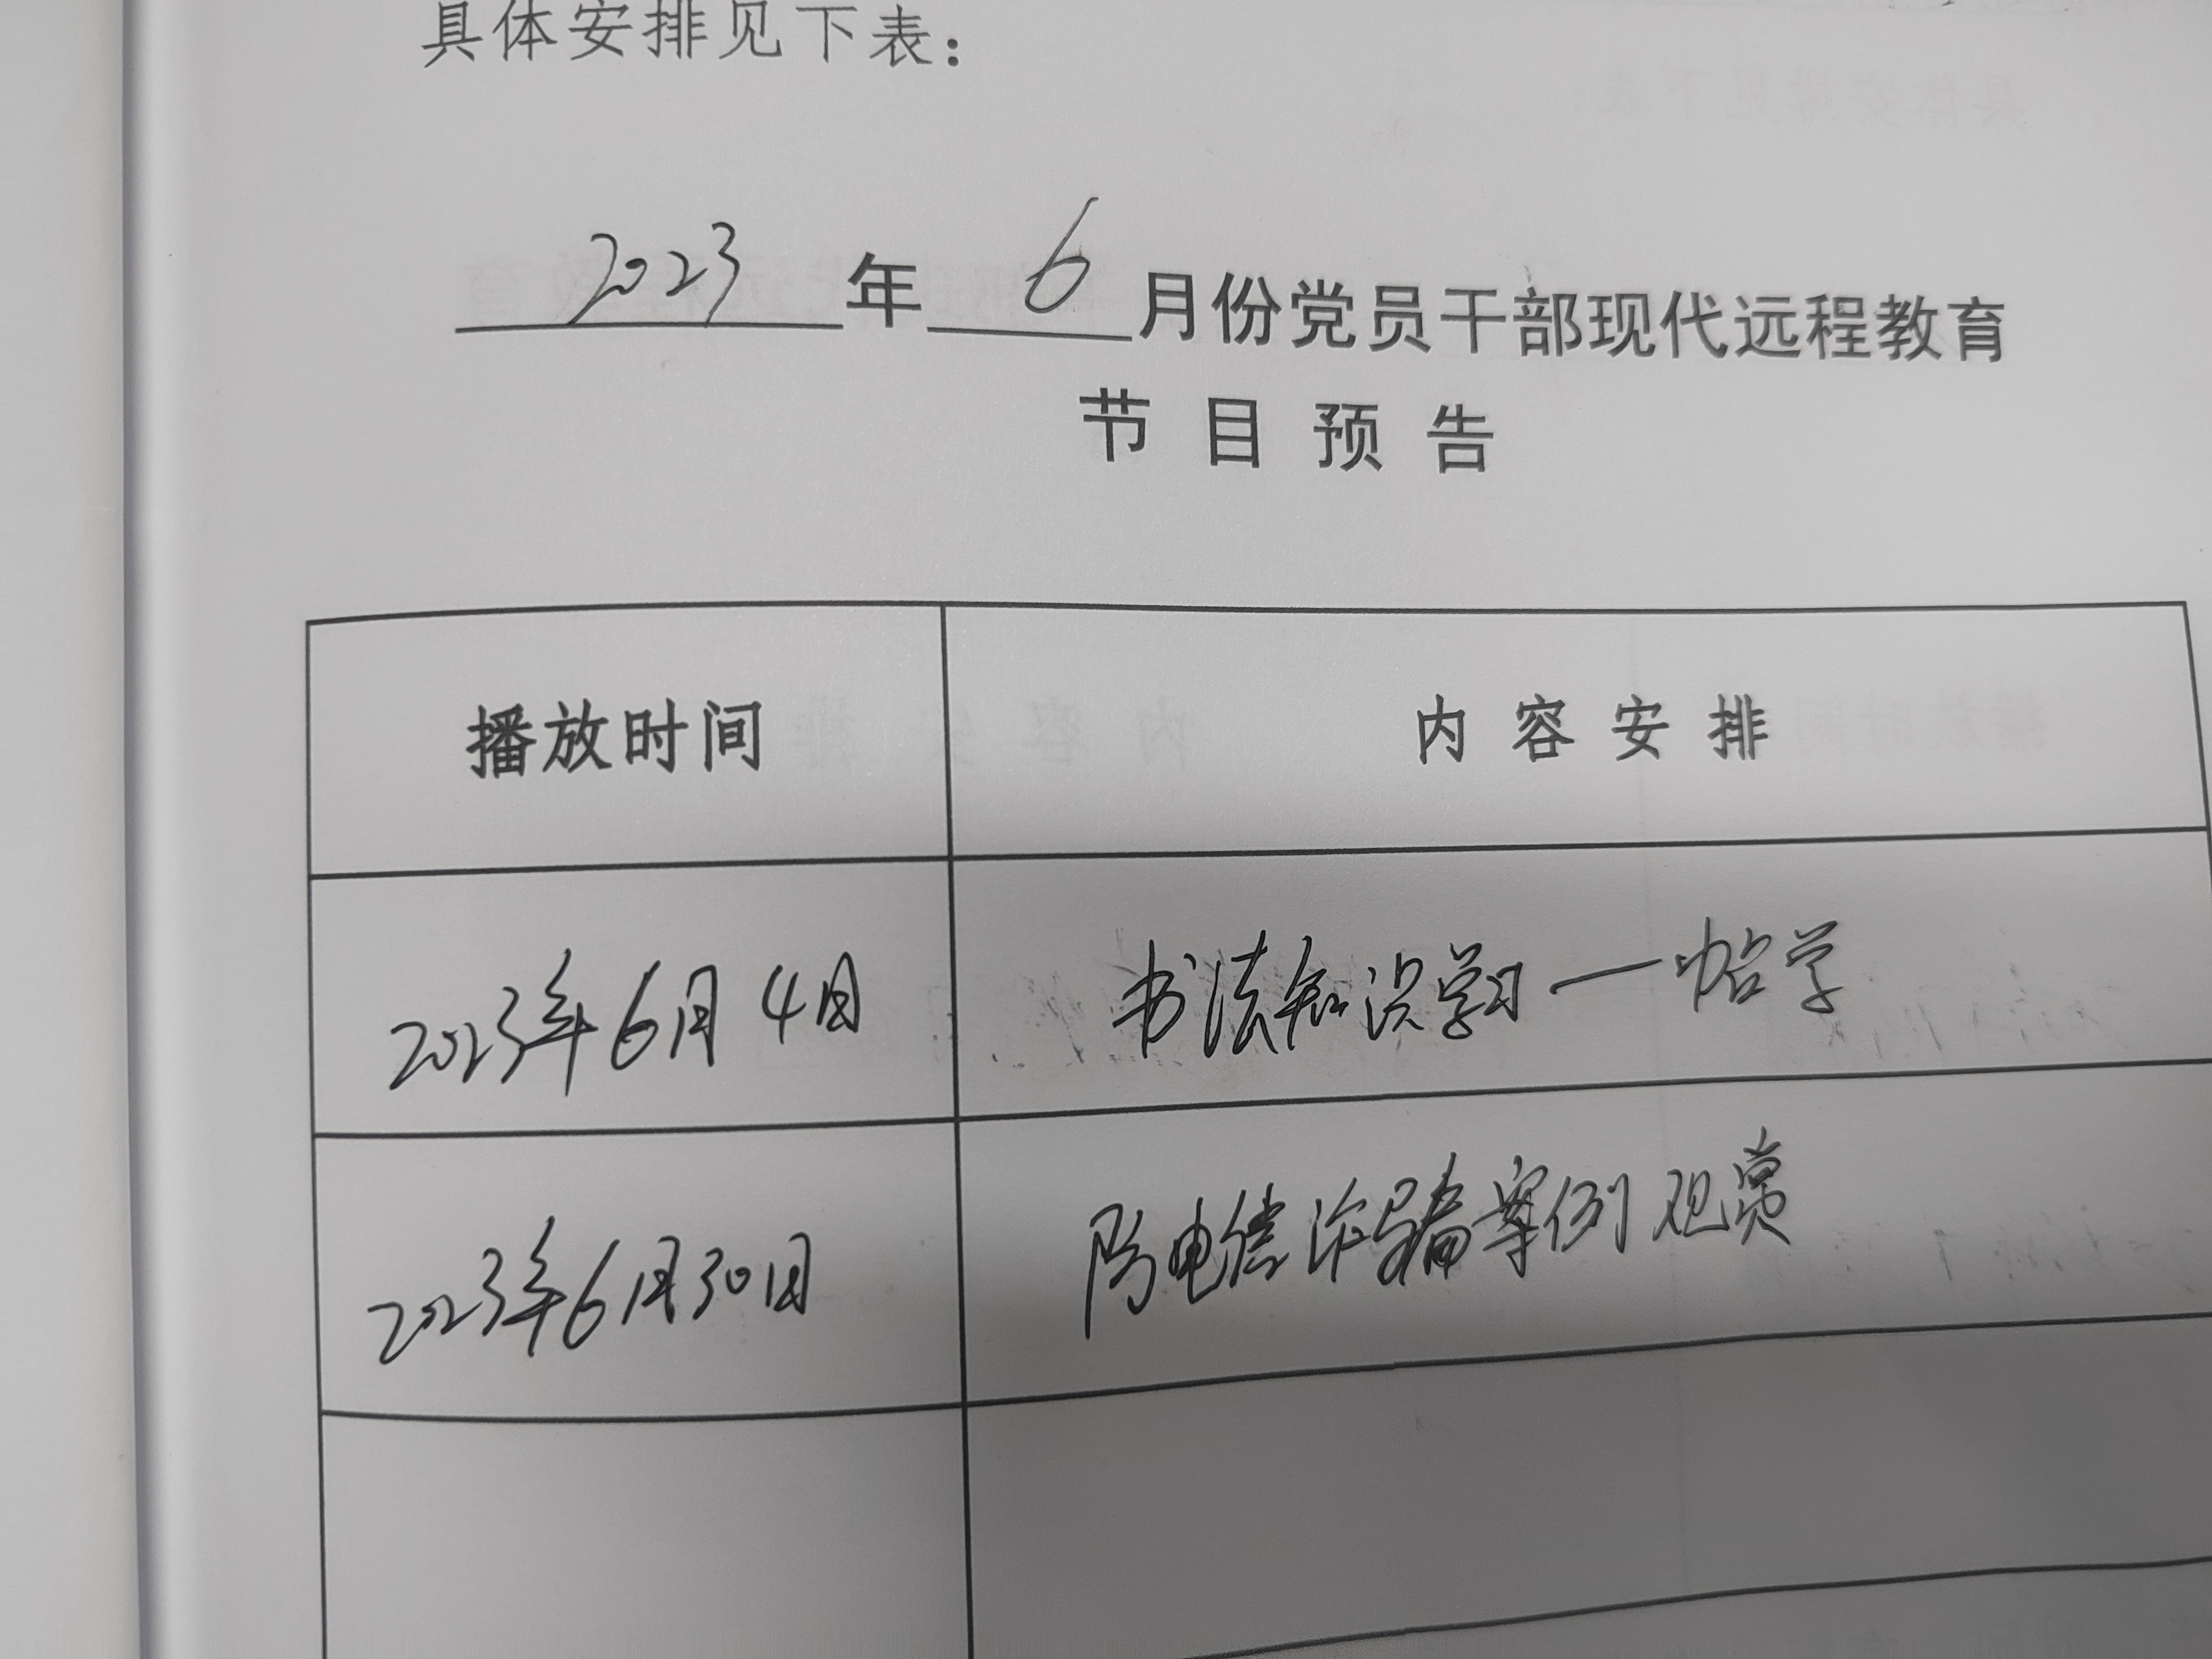 具体安排见下表：
2023年6月份党员干部现代远程教育
节目预告
播放时间 内容安排
2023年6月4日 书法知识学习—帖学
2023年6月30日 防电信诈骗案例观赏